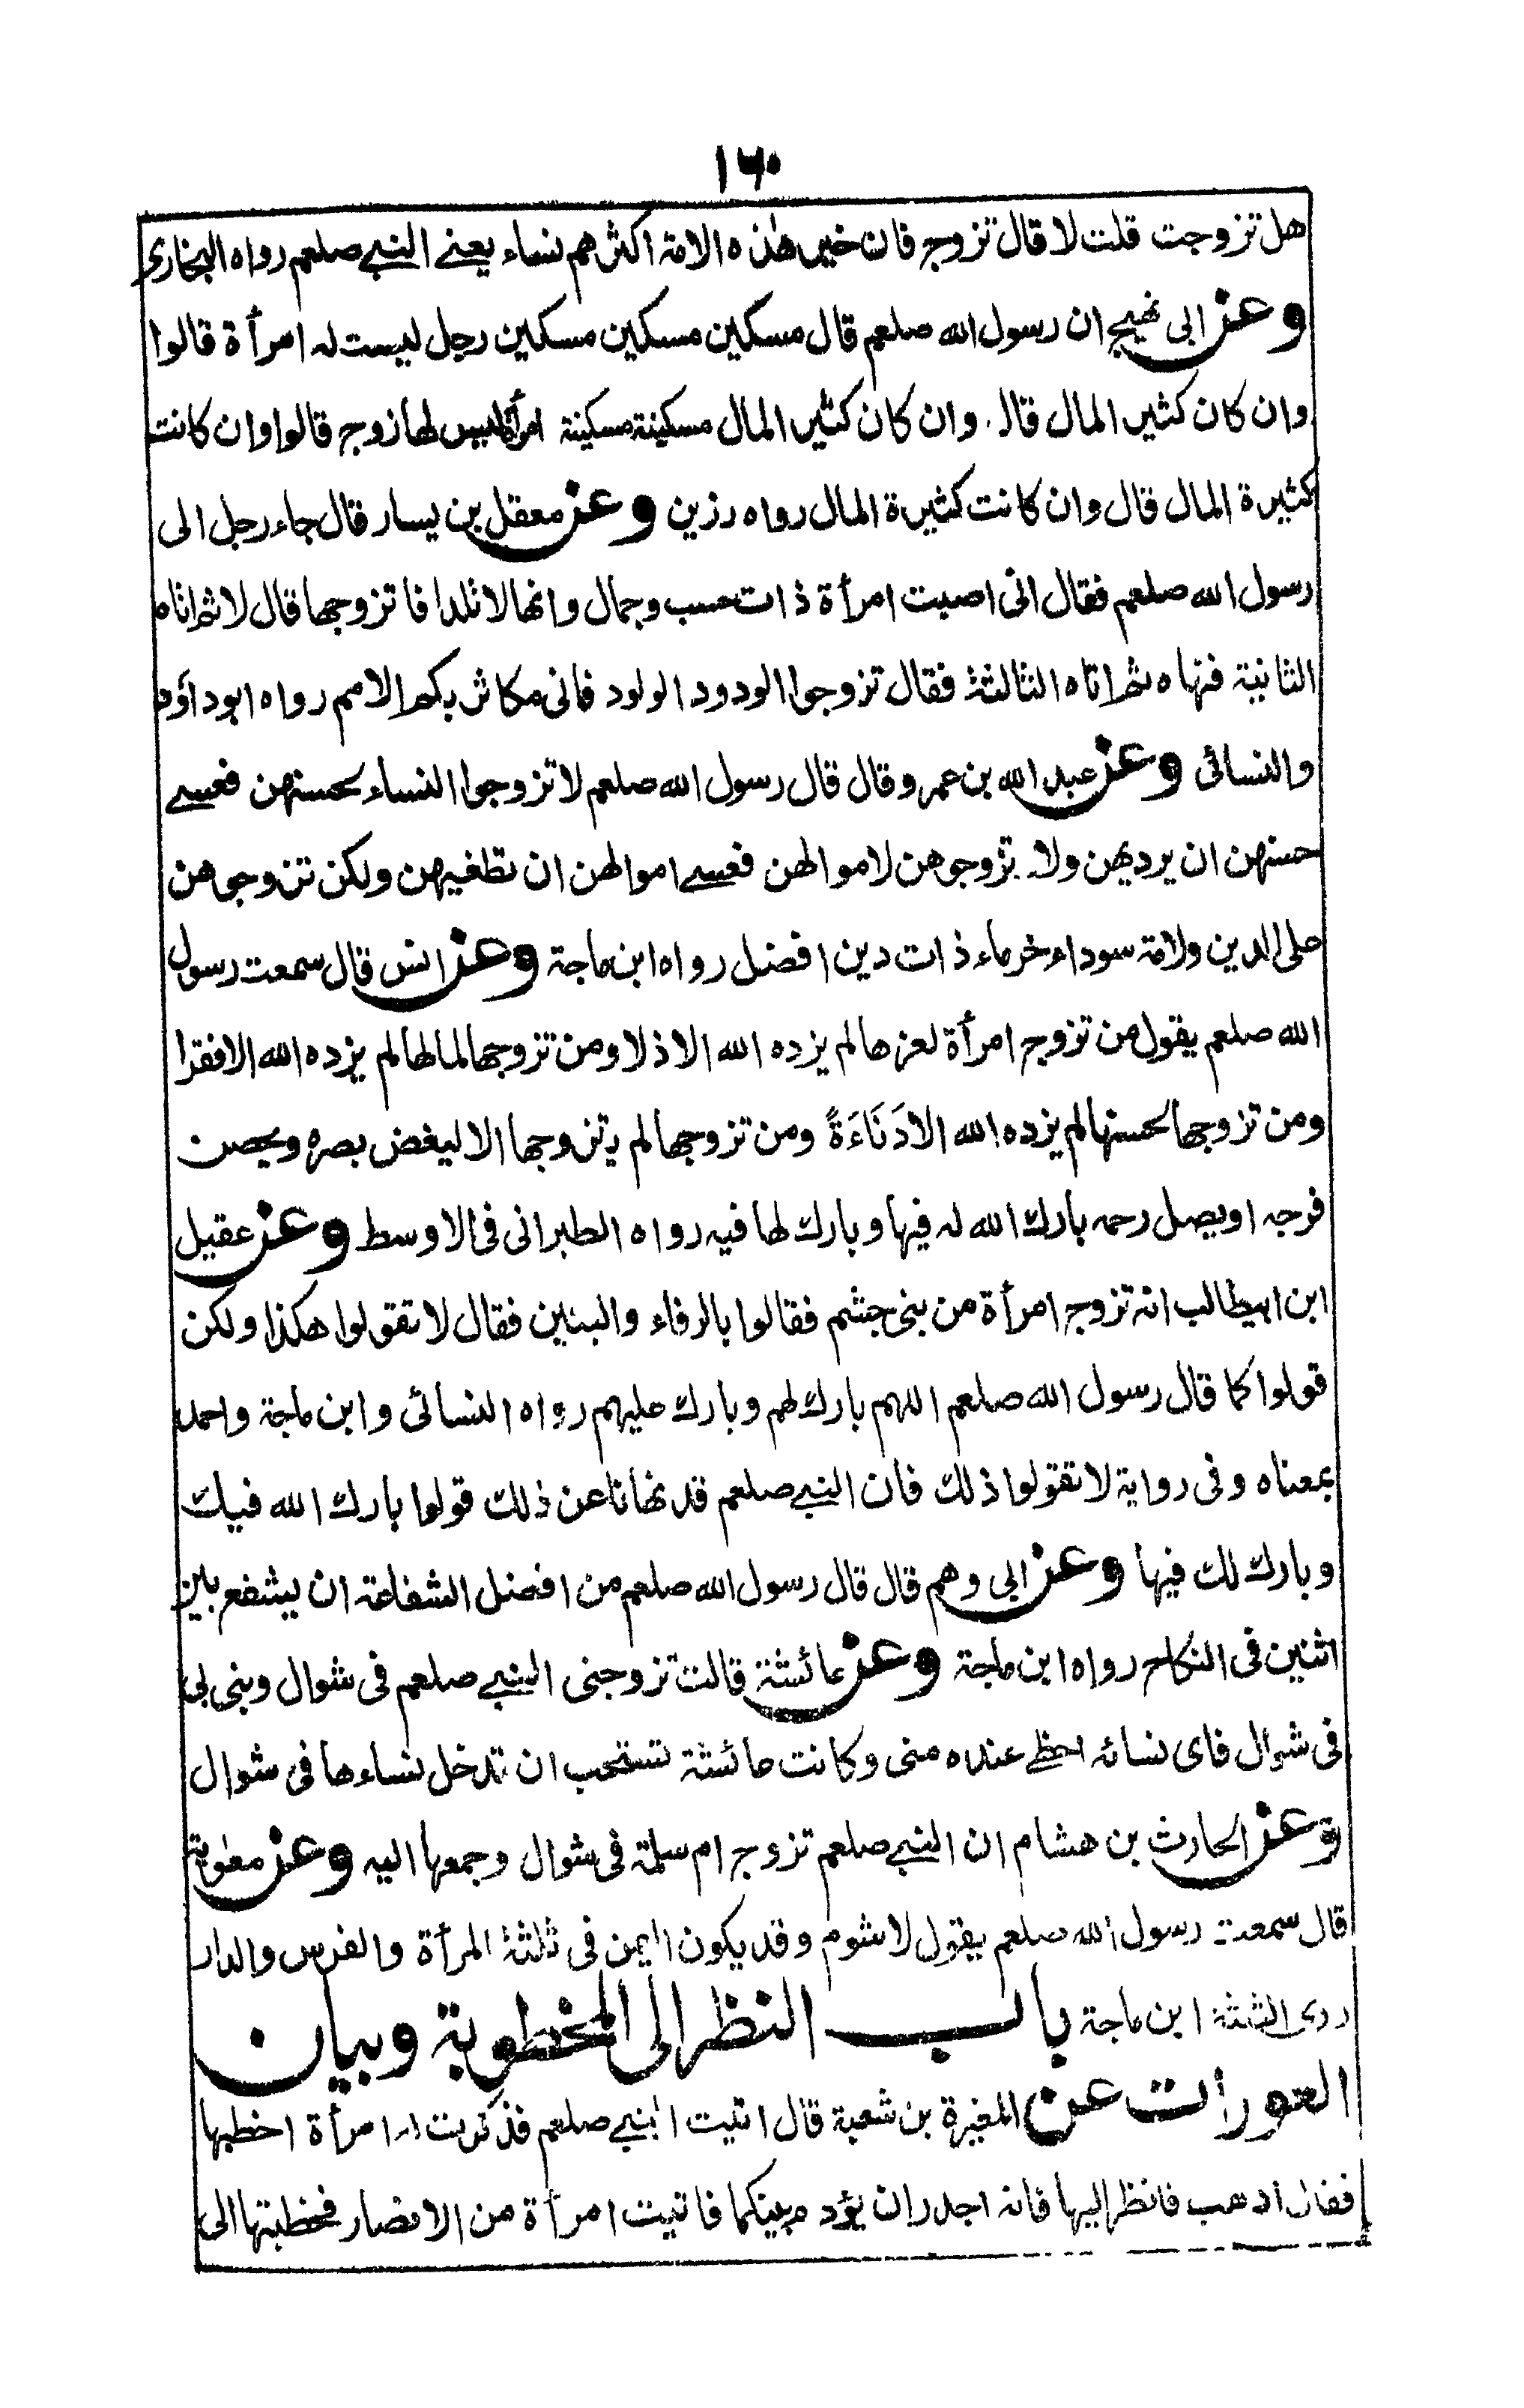 ١٦٠
هل تزوجت قلت لا قال تزوج فان خير هذه الامة اكثرهم نساء يعنے النبے صلعم رواه البخاری
وعن ابی نجيح ان رسول الله صلعم قال مسكين مسكين مسكين رجل ليست له امرأة قالوا
وان كان كثير المال قال وان كان كثير المال مسكينة مسكينة امرأة ليس لها زوج قالوا وان كانت
كثيرة المال قال وان كانت كثيرة المال رواه رزين وعن معقل بن يسار قال جاء رجل الی
رسول الله صلعم فقال انی اصبت امرأة ذات حسب وجمال وانها لا تلد افاتزوجها قال لا ثم اتاه
الثانية فنهاه ثم اتاه الثالثة فقال تزوجوا الودود الولود فانی مكاثر بكم الامم رواه ابوداؤد
والنسائی وعن عبد الله بن عمرو قال قال رسول الله صلعم لا تزوجوا النساء لحسنهن فعسے
حسنهن ان يرديهن ولا تزوجوهن لاموالهن فعسے اموالهن ان تطغيهن ولكن تزوجوهن
علی الدين ولامة سوداء خرماء ذات دين افضل رواه ابن ماجة وعن انس قال سمعت رسول
الله صلعم يقول من تزوج امرأة لعزها لم يزده الله الا ذلا ومن تزوجها لمالها لم يزده الله الا فقرا
ومن تزوجها لحسنها لم يزده الله الا دَنَاءَةً ومن تزوجها لم يتزوجها الا ليغض بصره ويحصن
فرجه او يصل رحمه بارك الله له فيها وبارك لها فيه رواه الطبرانی فی الاوسط وعن عقيل
ابن ابيطالب انه تزوج امرأة من بنی جشم فقالوا بالرفاء والبنين فقال لا تقولوا هكذا ولكن
قولوا كما قال رسول الله صلعم اللهم بارك لهم وبارك عليهم رواه النسائی وابن ماجة واحمد
بمعناه وفی رواية لا تقولوا ذلك فان النبے صلعم قد نهانا عن ذلك قولوا بارك الله فيك
وبارك لك فيها وعن ابی رهم قال قال رسول الله صلعم من افضل الشفاعة ان يشفع بين
اثنين فی النكاح رواه ابن ماجة وعن عائشة قالت تزوجنی النبے صلعم فی شوال وبنی بی
فی شوال فای نسائه احظے عنده منی وكانت عائشة تستحب ان تدخل نساءها فی شوال
وعن الحارث بن هشام ان النبے صلعم تزوج ام سلمة فی شوال وجمعها اليه وعن معٰوية
قال سمعت رسول الله صلعم يقول لا شوم وقد يكون اليمن فی ثلثة المرأة والفرس والدار
روی الثلثة ابن ماجة باب النظر الی المخطوبة وبيان
العورات عن المغيرة بن شعبة قال اتيت النبے صلعم فذكرت له امرأة اخطبها
فقال اذهب فانظر اليها فانه اجدر ان يؤدم بينكما فاتيت امرأة من الانصار فخطبتها الی